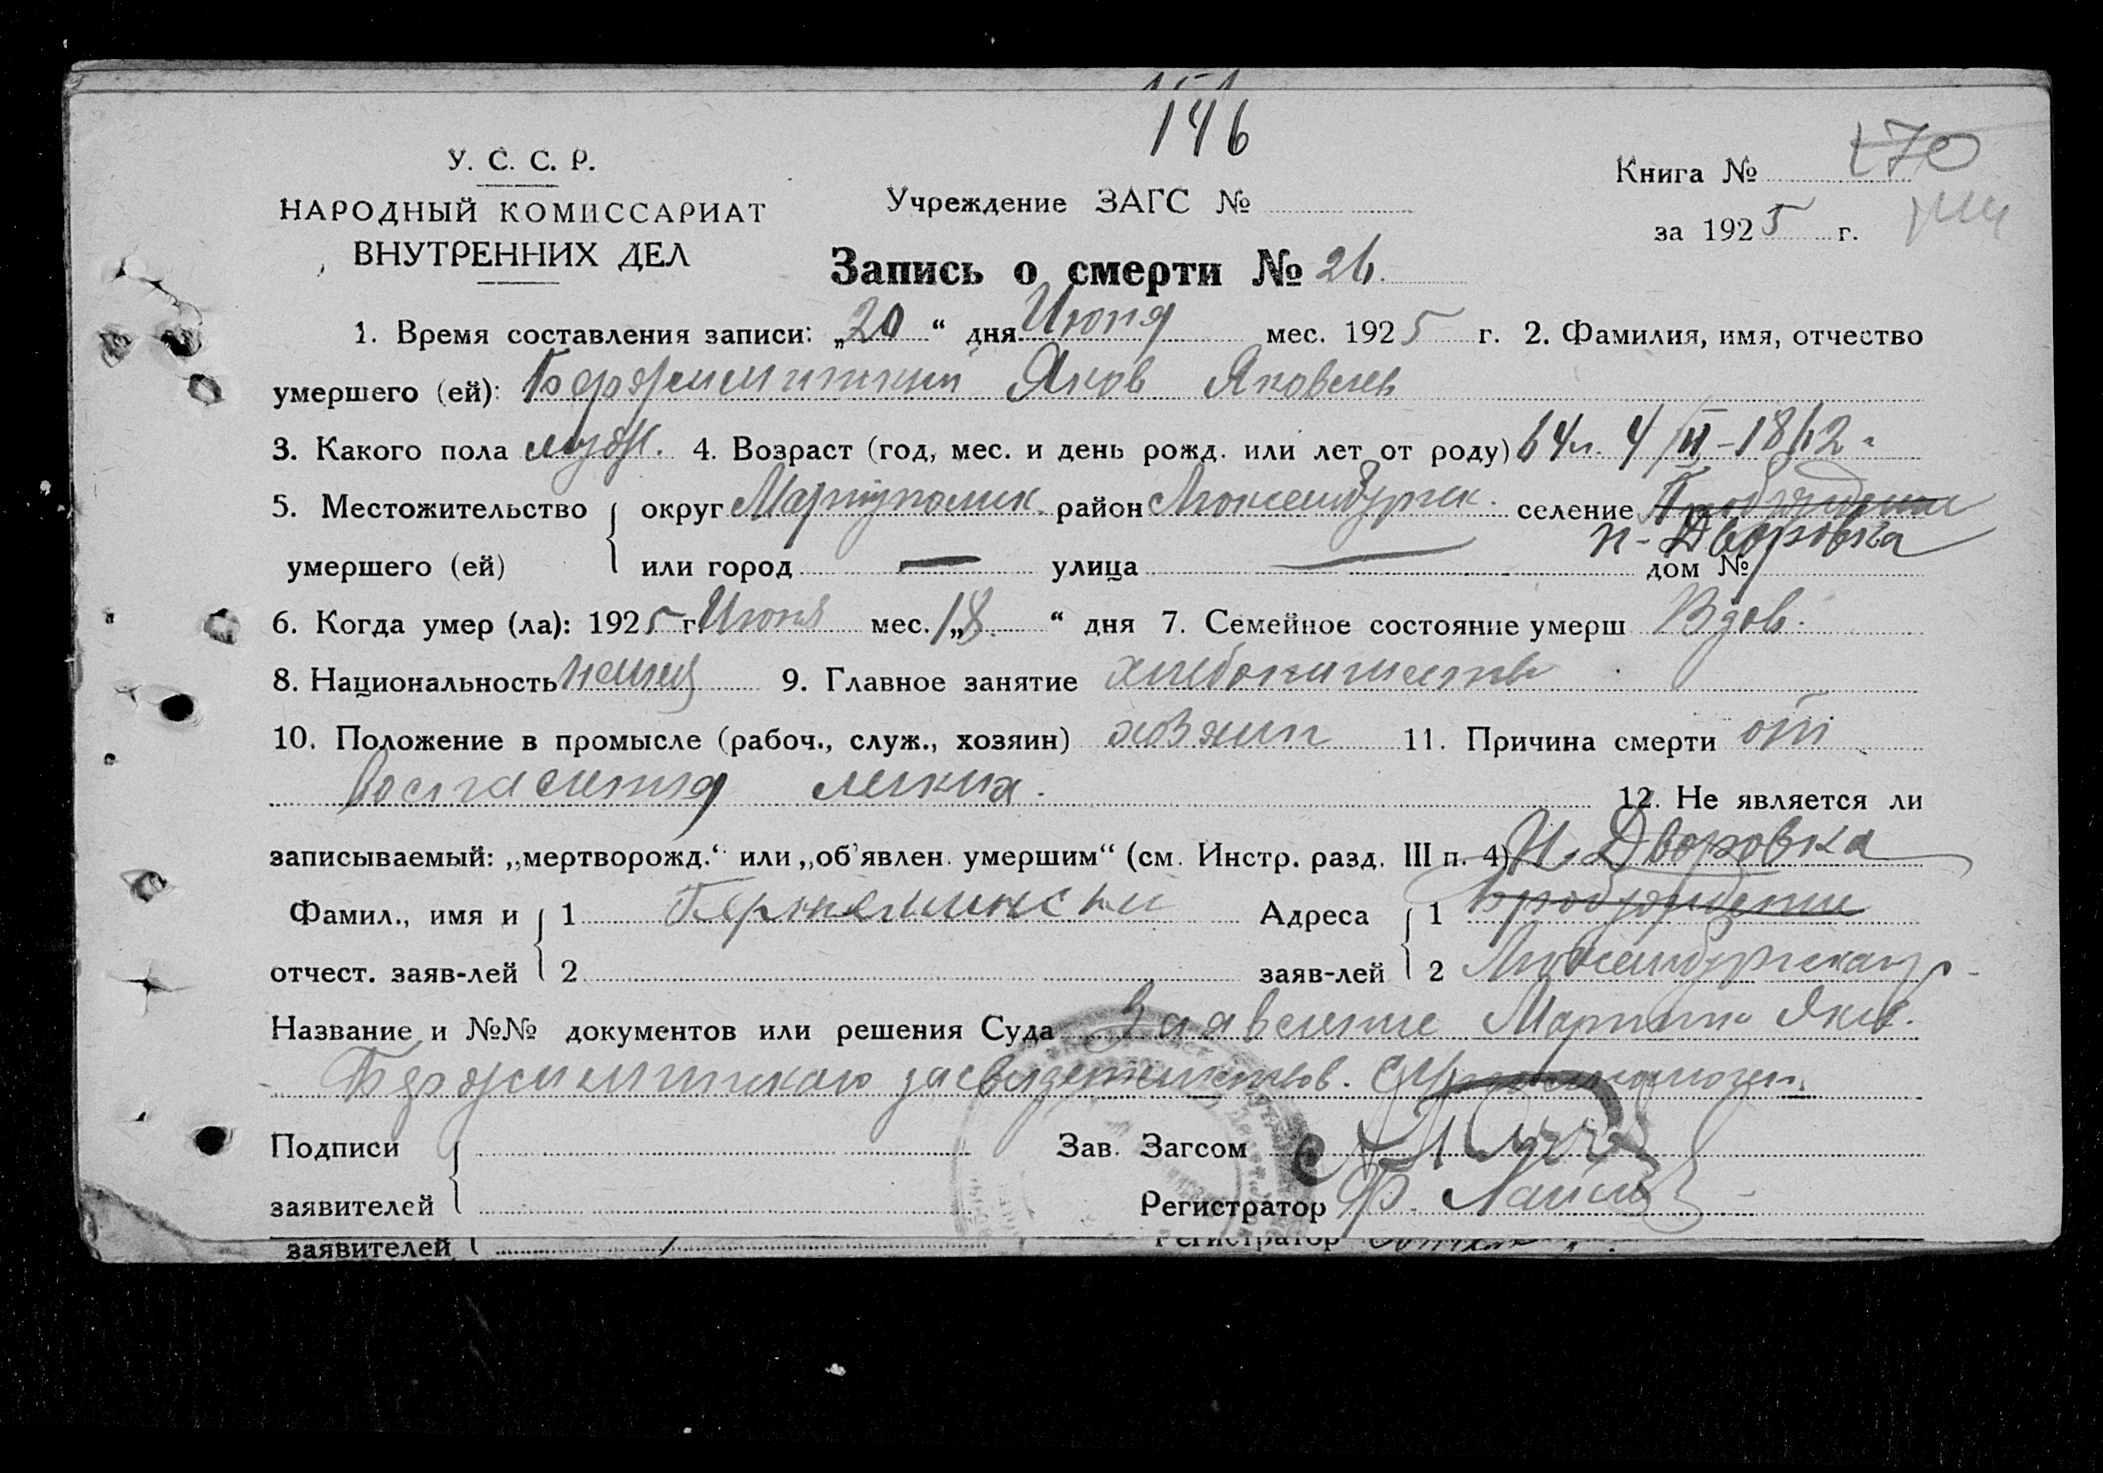 146
У. С. С. Р.
НАРОДНЫЙ КОМИССАРИАТ
ВНУТРЕННИХ ДЕЛ
Учреждение ЗАГС №
Книга № 170
за 1925 г.
Запись о смерти № 26.
1. Время составления записи: „20“ дня Июня мес. 1925 г. 2. Фамилия, имя, отчество
умершего (ей): Яков Яковлев
3. Какого пола мужс. 4. Возраст (год, мес. и день рожд. или лет от роду) 64 л. 4/II-1862
5. Местожительство округ Мариупольск. район Люксембургск. селение
н-Дворовка
умершего (ей) или город — улица — дом №
6. Когда умер (ла): 1925 г. Июня мес. „18“ дня 7. Семейное состояние умерш Вдов.
8. Национальность немец 9. Главное занятие хлебопашество
10. Положение в промысле (рабоч., служ., хозяин) хозяин 11. Причина смерти от
воспаления легких.
12. Не является ли
записываемый: „мертворожд.“ или „об'явлен. умершим“ (см. Инстр. разд. III п. 4) Н. Дворовка
Фамил., имя и 1 Адреса 1
отчест. заяв-лей 2 заяв-лей 2 Люксембургскаго р.
Название и №№ документов или решения Суда Заявление Мартина Яков.
Подписи Зав. Загсом
заявителей Регистратор
заявителей Регистратор